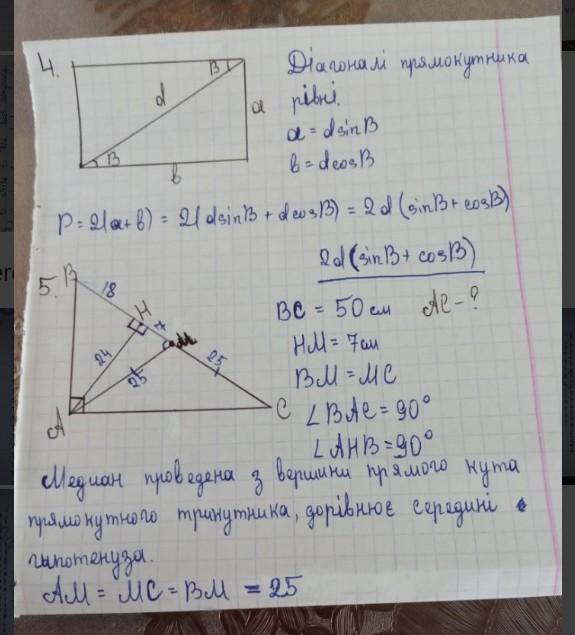 4.
B
d
a
B
b
Діагоналі прямокутника
рівні.
a = dsinB
b = dcosB
P = 2(a+b) = 2(dsinB + dcosB) = 2d (sinB + cosB)
2d(sinB + cosB)
5.
B
18
H
7
M
24
25
25
A
C
BC = 50 см AC - ?
HM = 7см
BM = MC
∠BAC = 90°
∠AHB = 90°
Медиан проведена з вершини прямого кута
прямокутного трикутника, дорівнює середині
гыпотенуза.
AM = MC = BM = 25